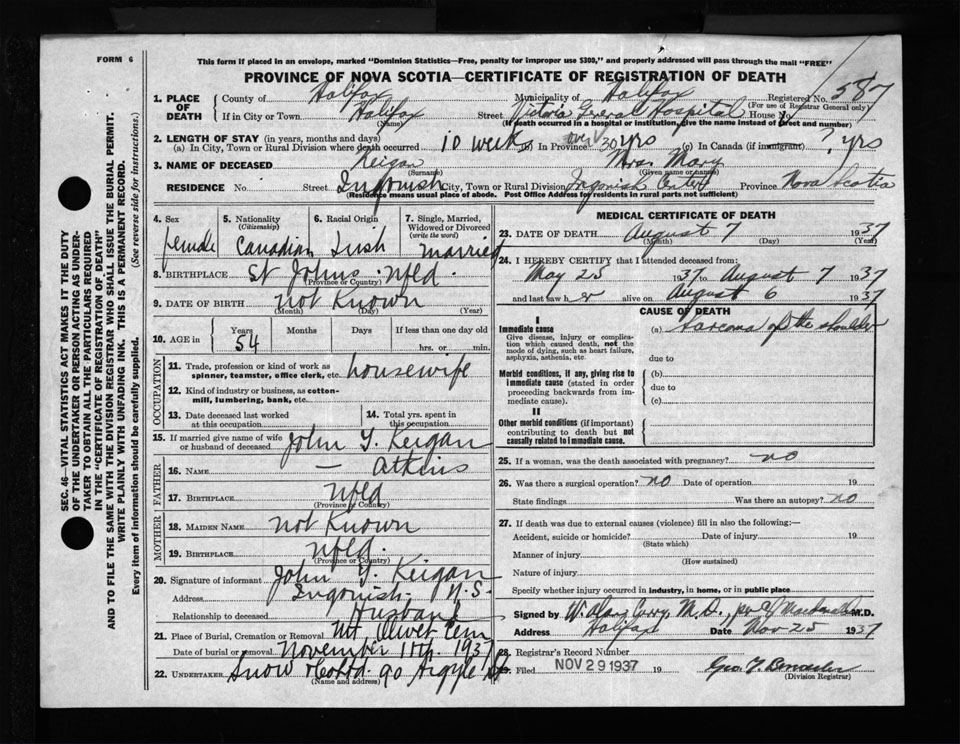 FORM 6
This form if placed in an envelope, marked "Dominion Statistics—Free, penalty for improper use $300," and properly addressed will pass through the mail "FREE"
PROVINCE OF NOVA SCOTIA—CERTIFICATE OF REGISTRATION OF DEATH
SEC. 46—VITAL STATISTICS ACT MAKES IT THE DUTY
OF THE UNDERTAKER OR PERSON ACTING AS UNDER-
TAKER TO OBTAIN ALL THE PARTICULARS REQUIRED
IN THE "CERTIFICATE OF REGISTRATION OF DEATH"
AND TO FILE THE SAME WITH THE DIVISION REGISTRAR WHO SHALL ISSUE THE BURIAL PERMIT.
WRITE PLAINLY WITH UNFADING INK. THIS IS A PERMANENT RECORD.
Every item of information should be carefully supplied. (See reverse side for instructions.)
1. PLACE OF DEATH County of Halifax Municipality of Halifax Registered No. 587
(For use of Registrar General only)
If in City or Town Halifax Street Victoria General Hospital House No.
(Name) (If death occurred in a hospital or institution, give the name instead of street and number)
2. LENGTH OF STAY (in years, months and days)
(a) In City, Town or Rural Division where death occurred 10 weeks (b) In Province over 30 yrs (c) In Canada (if immigrant) ? yrs
3. NAME OF DECEASED Keigan Mrs. Mary
(Surname) (Given name or names)
RESIDENCE No. Street Ingonish City, Town or Rural Division Ingonish Center Province Nova Scotia
(Residence means usual place of abode. Post Office Address for residents in rural parts not sufficient)
4. Sex female
5. Nationality (Citizenship) Canadian
6. Racial Origin Irish
7. Single, Married, Widowed or Divorced (write the word) married
8. BIRTHPLACE St Johns Nfld.
(Province or Country)
9. DATE OF BIRTH not Known
(Month) (Day) (Year)
10. AGE in Years 54 Months Days If less than one day old
hrs. or min.
OCCUPATION
11. Trade, profession or kind of work as spinner, teamster, office clerk, etc. housewife
12. Kind of industry or business, as cotton-mill, lumbering, bank, etc.
13. Date deceased last worked at this occupation
14. Total yrs. spent in this occupation
15. If married give name of wife or husband of deceased John Y. Keigan
FATHER
16. NAME — Atkins
17. BIRTHPLACE Nfld
(Province or Country)
MOTHER
18. MAIDEN NAME not Known
19. BIRTHPLACE Nfld.
(Province or Country)
20. Signature of informant John Y. Keigan
Address Ingonish N.S.
Relationship to deceased Husband
21. Place of Burial, Cremation or Removal Mt. Olivet Cem
Date of burial or removal November 11th. 1937
22. UNDERTAKER Snow & Co Ltd. 90 Argyle St
(Name and address)
MEDICAL CERTIFICATE OF DEATH
23. DATE OF DEATH August 7 1937
(Month) (Day) (Year)
24. I HEREBY CERTIFY that I attended deceased from:
May 25 1937 to August 7 1937
and last saw her alive on August 6 1937
CAUSE OF DEATH
I
Immediate cause (a) Sarcoma of the shoulder
Give disease, injury or complication which caused death, not the mode of dying, such as heart failure, asphyxia, asthenia, etc.
due to
Morbid conditions, if any, giving rise to immediate cause (stated in order proceeding backwards from immediate cause).
(b)
due to
(c)
II
Other morbid conditions (if important) contributing to death but not causally related to immediate cause.
25. If a woman, was the death associated with pregnancy? no
26. Was there a surgical operation? no Date of operation 19
State findings Was there an autopsy? no
27. If death was due to external causes (violence) fill in also the following:—
Accident, suicide or homicide? Date of injury 19
(State which)
Manner of injury
(How sustained)
Nature of injury
Specify whether injury occurred in industry, in home, or in public place
Signed by W. Alan Curry, M.D., per M.D.
Address Halifax Date Nov 25 1937
28. Registrar's Record Number
29. Filed NOV 29 1937 19
(Division Registrar)